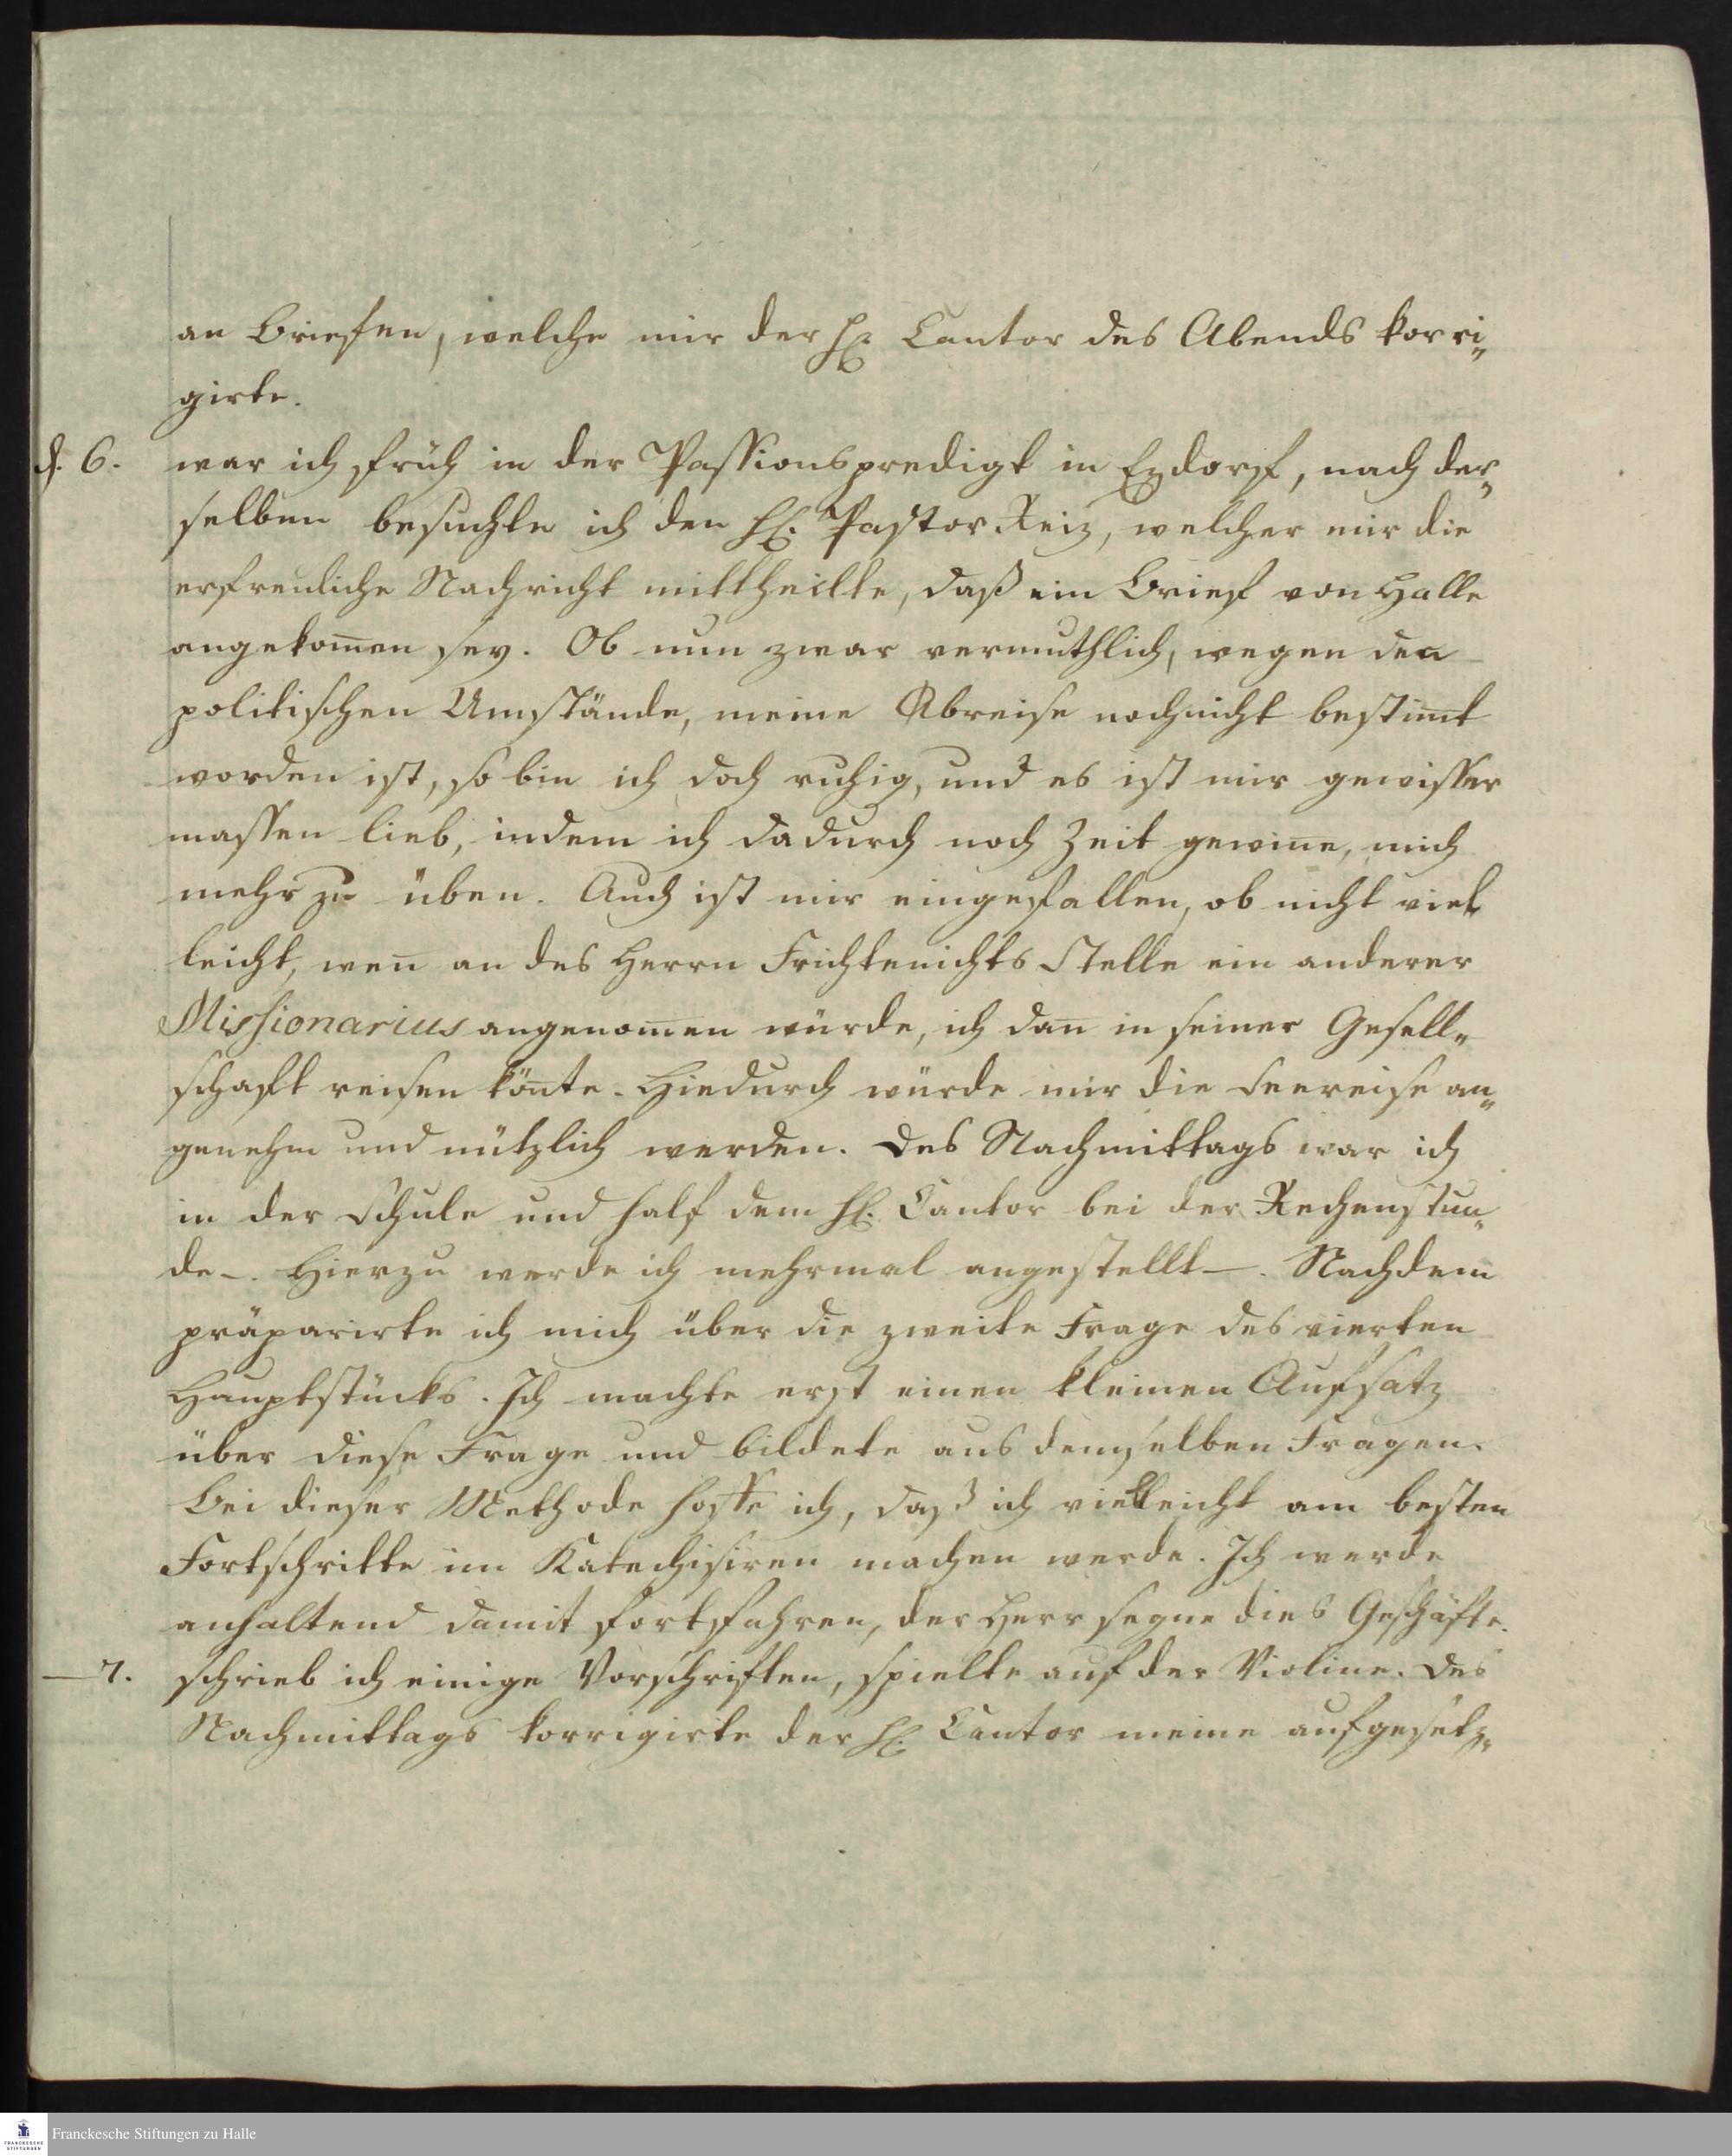 an Briefen, welche mir der H. Cantor des Abends korri„
girte.
d. 6. war ich früh in der Passionspredigt in Ezdorf, nach der„
selben besuchte ich den H. Pastor Reiz, welcher mir die
erfreuliche Nachricht mittheilte, daß ein Brief von Halle
angekom̅en sey. Ob nun zwar vermuthlich, wegen den
politischen Umstände, meine Abreise noch nicht bestim̅t
worden ist, so bin ich doch ruhig, und es ist mir gewisser
massen lieb, indem ich dadurch noch Zeit gewin̅e, mich
mehr zu üben. Auch ist mir eingefallen, ob nicht viel
leicht, wen̅ an des Herrn Frichtenichts Stelle ein anderer
Missionarius angenom̅en würde, ich dan̅ in seiner Gesell„
schaft reisen kön̅te. Hiedurch würde mir die Seereise an„
genehm und nützlich werden. Des Nachmittags war ich
in der Schule und half dem H. Cantor bei der Rechenstun„
de –. Hierzu werde ich mehrmal angestellt –. Nachdem
präparirte ich mich über die zweite Frage des vierten
Hauptstücks. Ich machte erst einen kleinen Aufsatz
über diese Frage und bildete aus demselben Fragen.
Bei dieser Methode hoffe ich, daß ich vielleicht am besten
Fortschritte im Katechisiren machen werde. Ich werde
anhaltend damit fortfahren, der Herr segne dies Geschäfte.
— 7. schrieb ich einige Vorschriften, spielte auf der Violine. Des
Nachmittags korrigirte der H. Cantor meine aufgesetz„
FRANCKESCHE STIFTUNGEN
Franckesche Stiftungen zu Halle